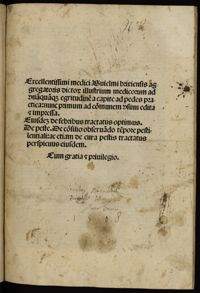 Excellentissimi medici Guielmi brixiensis ag
gregatoris dictorum illustrium medicorum ad
vnãquãqz egritudinē a capite ad pedes pra
ctica: nunc primum ad cōmunem vsum edita
z impressa.
Eiusdez de febribus tractatus optimus.
De peste. De cōsilio obseruãdo tēpore pesti
lentiali: ac etiam de cura pestis tractatus
perspicuus eiusdem.
Cum gratia z priuilegio.